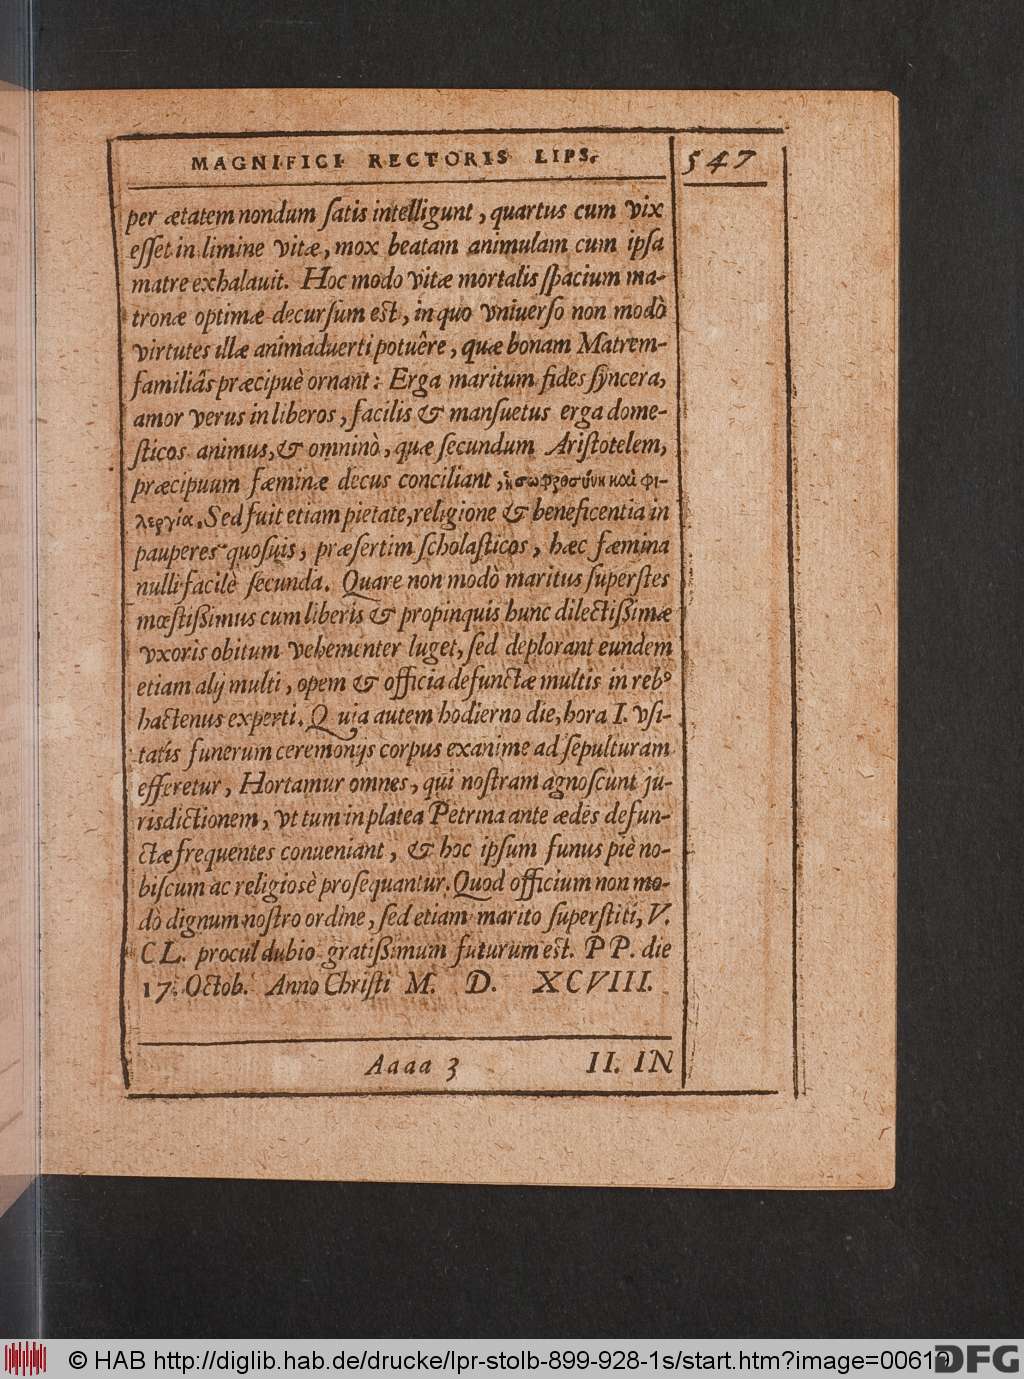 MAGNIFICI RECTORIS LIPS. 547
per ætatem nondum ſatis intelligunt, quartus cum vix
eſſet in limine vitæ, mox beatam animulam cum ipſa
matre exhalauit. Hoc modo vitæ mortalis ſpacium ma-
tronæ optimæ decurſum est, in quo vniuerſo non modò
virtutes illæ animaduerti potuêre, quæ bonam Matrem-
familiâs præcipuè ornant: Erga maritum fides ſyncera,
amor verus in liberos, facilis & manſuetus erga dome-
ſticos animus, & omninò, quæ ſecundum Ariſtotelem,
præcipuum fæminæ decus conciliant, ἡ σωφροσύνη καὶ φι-
λεργία. Sed fuit etiam pietate, religione & beneficentia in
pauperes quoſuis, præſertim ſcholaſticos, hæc fæmina
nulli facilè ſecunda. Quare non modò maritus ſuperſtes
mœſtiſſimus cum liberis & propinquis hunc dilectiſſimæ
vxoris obitum vehementer luget, ſed deplorant eundem
etiam alij multi, opem & officia defunctæ multis in reb⁹
hactenus experti. Quia autem hodierno die, hora I. vſi-
tatis funerum ceremonijs corpus exanime ad ſepulturam
efferetur, Hortamur omnes, qui noſtram agnoſcunt ju-
risdictionem, vt tum in platea Petrina ante ædes defun-
ctæ frequentes conueniant, & hoc ipſum funus piè no-
biſcum ac religioſè proſequantur. Quod officium non mo-
dò dignum noſtro ordine, ſed etiam marito ſuperſtiti, V.
CL. procul dubio gratiſſimum futurum est. PP. die
17. Octob. Anno Chriſti M. D. XCVIII.
Aaaa 3 II. IN
© HAB http://diglib.hab.de/drucke/lpr-stolb-899-928-1s/start.htm?image=00619
DFG